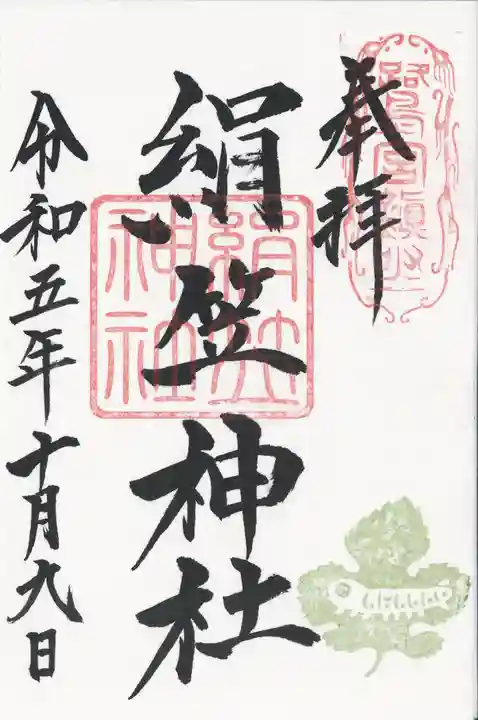 奉拝
絹笠神社
絹笠神社
令和五年十月九日